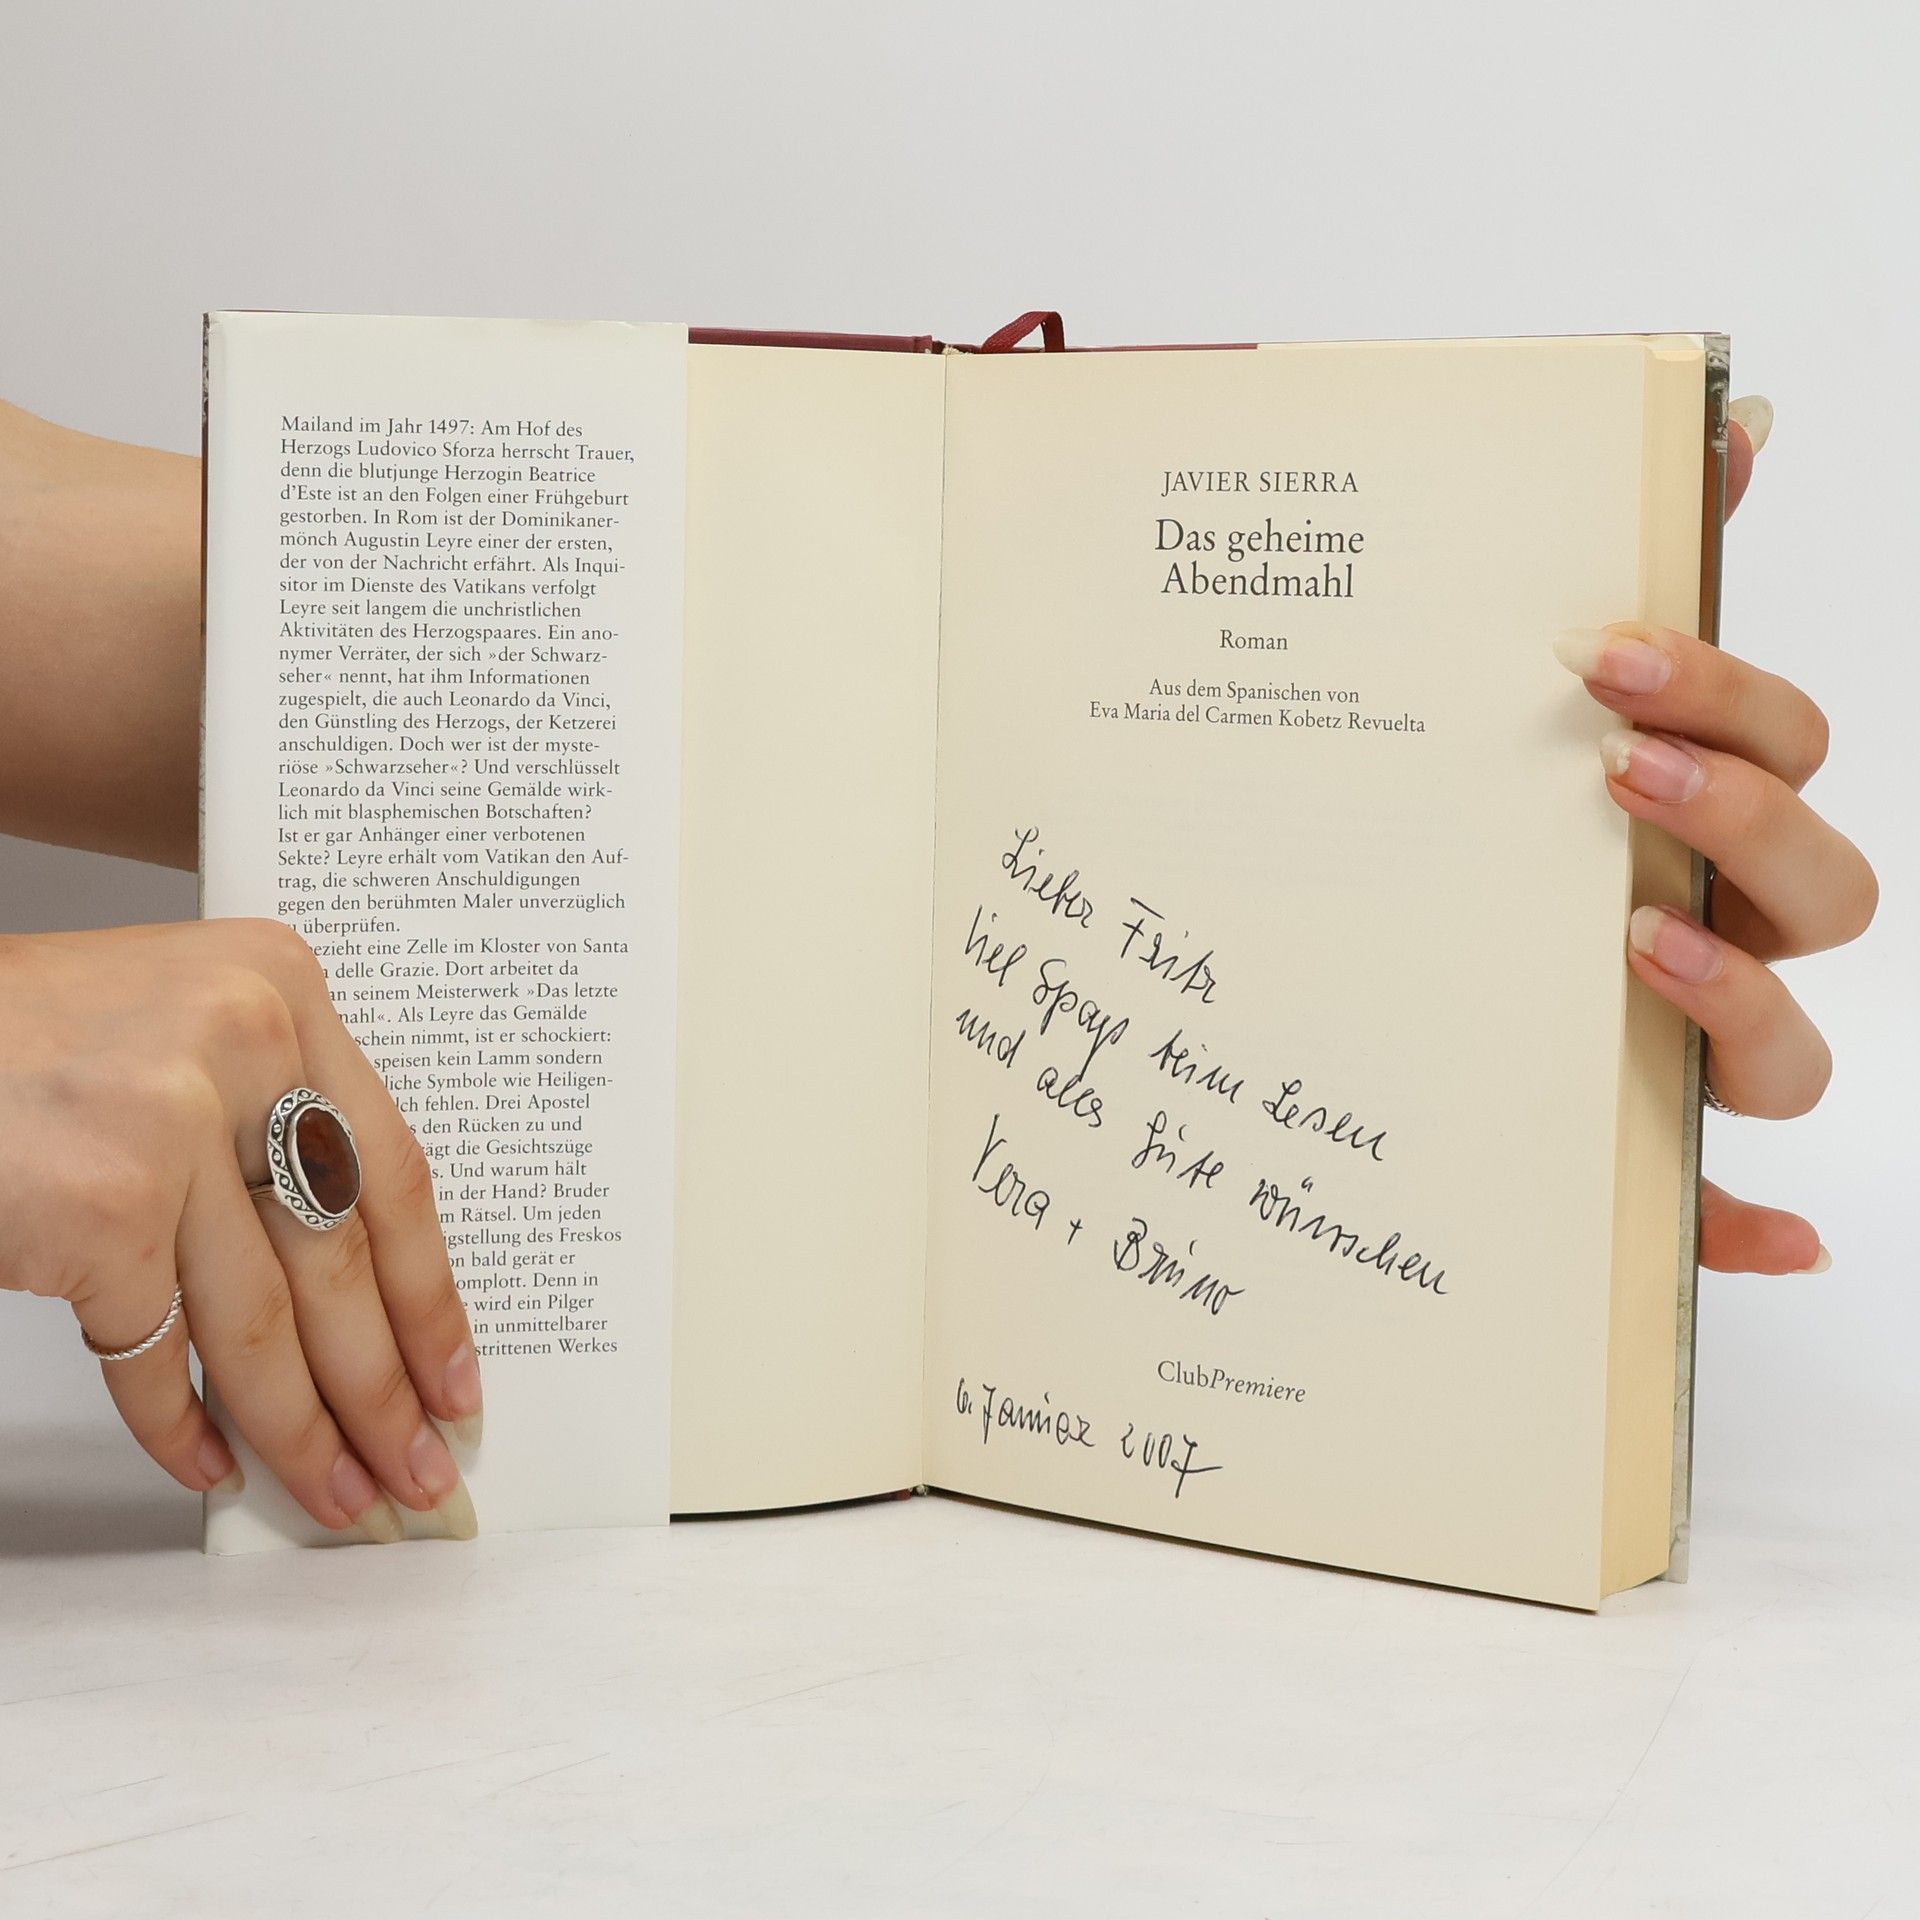 Mailand im Jahr 1497: Am Hof des
Herzogs Ludovico Sforza herrscht Trauer,
denn die blutjunge Herzogin Beatrice
d'Este ist an den Folgen einer Frühgeburt
gestorben. In Rom ist der Dominikaner-
mönch Augustin Leyre einer der ersten,
der von der Nachricht erfährt. Als Inqui-
sitor im Dienste des Vatikans verfolgt
Leyre seit langem die unchristlichen
Aktivitäten des Herzogspaares. Ein ano-
nymer Verräter, der sich »der Schwarz-
seher« nennt, hat ihm Informationen
zugespielt, die auch Leonardo da Vinci,
den Günstling des Herzogs, der Ketzerei
anschuldigen. Doch wer ist der myste-
riöse »Schwarzseher«? Und verschlüsselt
Leonardo da Vinci seine Gemälde wirk-
lich mit blasphemischen Botschaften?
Ist er gar Anhänger einer verbotenen
Sekte? Leyre erhält vom Vatikan den Auf-
trag, die schweren Anschuldigungen
gegen den berühmten Maler unverzüglich
überprüfen.
bezieht eine Zelle im Kloster von Santa
delle Grazie. Dort arbeitet da
an seinem Meisterwerk »Das letzte
mahl«. Als Leyre das Gemälde
schein nimmt, ist er schockiert:
speisen kein Lamm sondern
liche Symbole wie Heiligen-
lch fehlen. Drei Apostel
s den Rücken zu und
rägt die Gesichtszüge
s. Und warum hält
in der Hand? Bruder
m Rätsel. Um jeden
igstellung des Freskos
on bald gerät er
omplott. Denn in
e wird ein Pilger
in unmittelbarer
strittenen Werkes
JAVIER SIERRA
Das geheime
Abendmahl
Roman
Aus dem Spanischen von
Eva Maria del Carmen Kobetz Revuelta
Lieber Fritz
viel Spaß beim Lesen
und alles Gute wünschen
Vera + Bruno
ClubPremiere
6. Januar 2007